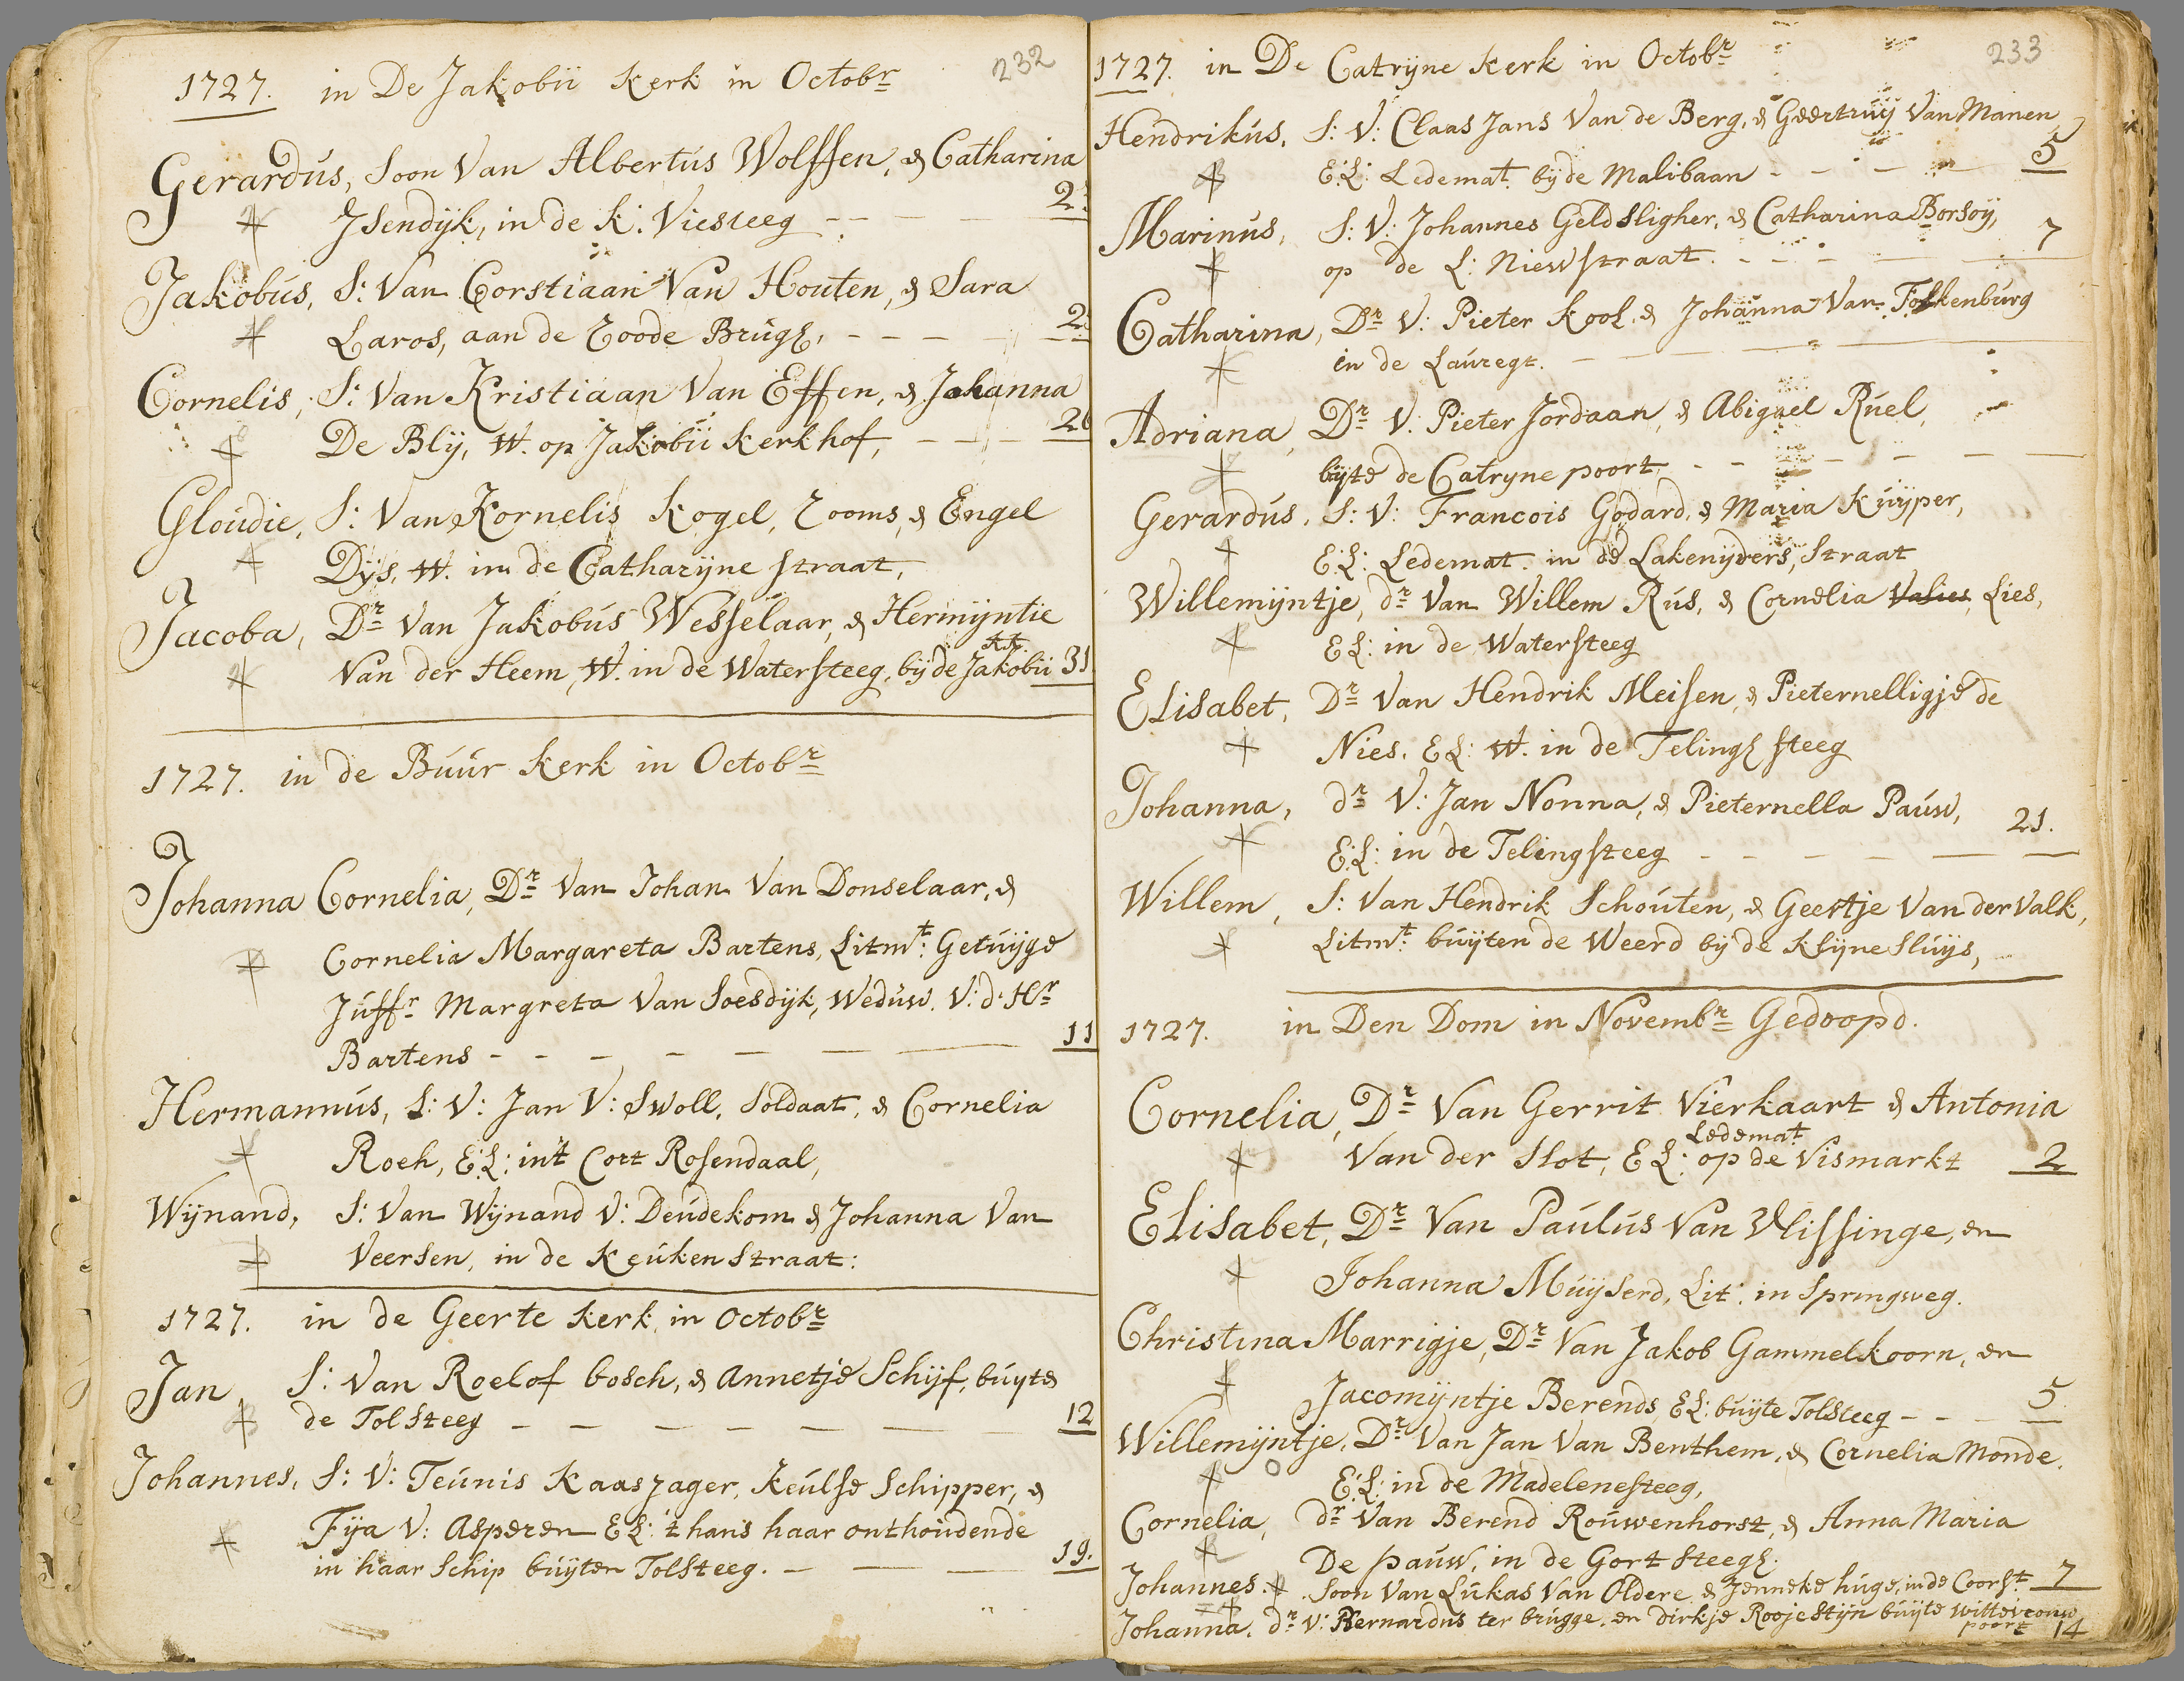 232
1727. in De Jakobii kerk in Octobr
Gerardus, Soon Van Albertus Wolffen, & Catharina
Jsendijk, in de k: Viesteeg - - - - 2.
Jakobus, S: Van Corstiaan Van Houten, & Sara
Laros, aan de roode Brugh, - - - - 2.
Cornelis, S: Van Kristiaan Van Effen, & Johanna
De Blij, W. op Jakobii kerkhof, - - - 26
Gloudie, S: Van Kornelis Kogel, rooms, & Engel
Dijs, W. in de Catharijne straat,
Jacoba, Dr Van Jakobus Wesselaar, & Hermijntie
Van der Heem, W. in de Watersteeg, bij de Jakobii kk. 31
1727. in de Buur kerk in Octobr
Johanna Cornelia, Dr Van Johan Van Donselaar, &
Cornelia Margareta Bartens, Litmt: Getuijge
Juffr Margreta Van Soesdijk, Weduw. V: d: Hr
Bartens - - - - - - - 11
Hermannus, S: V: Jan V: Swoll, Soldaat, & Cornelia
Roeh, E:L: in't Cort Rosendaal,
Wijnand, S: Van Wijnand V: Deudekom & Johanna Van
Veersen, in de Keuken straat:
1727. in de Geerte kerk in Octobr
Jan, S: Van Roelof bosch, & Annetje Schijf, buyte
de Tolsteeg - - - - - - - 12
Johannes, S: V: Teunis Kaasjager, keulse Schipper, &
Fija V: Asperen EL: 't hans haar onthoudende
in haar Schip buijten Tolsteeg. - - - 19.
233
1727. in De Catrijne kerk in Octobr
Hendrikus, S: V: Claas Jans Van de Berg, & Geertruij Van Manen
E:L: Ledemat. bij de Malibaan - - - - 5
Marinus, S: V: Johannes Geldsligher, & Catharina Borsoij,
op de L: Niewstraat. - - - - - 7
Catharina, Dr V: Pieter Kool, & Johanna Van Folkenburg
in de Lauregt. - - - - -
Adriana, Dr V: Pieter Jordaan, & Abigael Ruel,
bijte de Catryne poort, - - - - - -
Gerardus, S: V: Francois Godard, & Maria Kuijper,
E:L: Ledemat. in de Lakenijders, Straat
Willemijntje, dr Van Willem Rus, & Cornelia Valies, Lies,
EL: in de Watersteeg
Elisabet, Dr Van Hendrik Meisen, & Pieternelligje de
Nies, EL: W. in de Telingh steeg
Johanna, dr V: Jan Nonna, & Pieternella Pauw,
E:L: in de Telingsteeg - - - - - - 21.
Willem, S: Van Hendrik Schouten, & Geertje Van der Valk,
Litmt: buijten de Weerd bij de Klijne Sluijs,
1727. in Den Dom in Novembr Gedoopd.
Cornelia, Dr Van Gerrit Vierkaart & Antonia
Van der Slot, EL: Ledemat op de Vismarkt 2
Elisabet, Dr Van Paulus Van Vlissinge, en
Johanna Muijserd, Lit: in Springweg.
Christina Marrigje, Dr Van Jakob Gammelkoorn, en
Jacomijntje Berends, EL: buijte Tolsteeg - - - 5
Willemijntje, Dr Van Jan Van Benthem, & Cornelia Monde,
E:L: in de Madelenesteeg,
Cornelia, dr Van Berend Rouwenhorst, & Anna Maria
De pauw, in de Gort steegh.
Johannes. Soon Van Lukas Van Oldere, & Jenneke huge, in de Coorst 7
Johanna. dr V: Bernardus ter brugge, en dirkje Rooje stijn buijte wittevrouw
poort 14